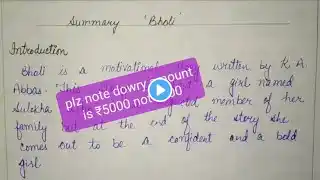 Summary 'Bholi'
Introduction
Bholi is a motivational written by K. A
Abbas. a girl named
Sulekha member of her
family at the end of the story she
comes out to be a confident and a bold
girl
plz note dowry amount
is ₹5000 not